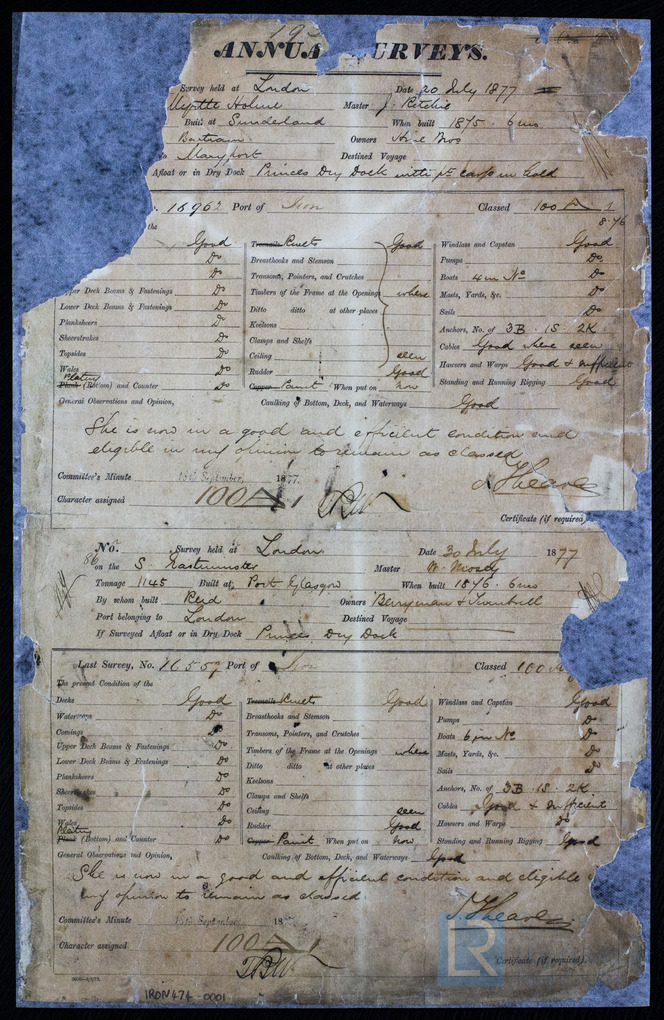 ANNUA URVEYS.
Survey held at London Date 20 July 1877
Myrtle Holme Master J. Ritchie
Built at Sunderland When built 1875 . 6 mo
Bartram Owners Hine Bros
Maryport Destined Voyage
Afloat or in Dry Dock Princes Dry Dock with pt cargo in hold
16962 Port of Iron Classed 100 A 1
8.76
the
Good Treenails Rivets Good Windlass and Capstan Good
Do Breasthooks and Stemson Pumps Do
Do Transoms, Pointers, and Crutches Boats 4 in No Do
Upper Deck Beams & Fastenings Do Timbers of the Frame at the Openings where Masts, Yards, &c. Do
Lower Deck Beams & Fastenings Do Ditto ditto at other places Sails Do
Planksheers Do Keelsons Anchors, No. of 3B . 1S . 2K
Sheerstrakes Do Clamps and Shelfs Cables Good where seen
Topsides Do Ceiling seen Hawsers and Warps Good & sufficient
Wales Do Rudder Good Standing and Running Rigging Good
Plating
Plank (Bottom) and Counter Do Copper Paint When put on now
General Observations and Opinion, Caulking of Bottom, Deck, and Waterways Good
She is now in a good and efficient condition and
eligible in my opinion to remain as classed
Committee's Minute September, 1877.
Character assigned 100 A 1
Certificate (if required)
No. Survey held at London Date 30 July 1877
86 on the S. Eastminster Master W. Mosey
Tonnage 1145 Built at Port Glasgow When built 1876 . 6 mo
By whom built Reid Owners Berryman & Turnbull
Port belonging to London Destined Voyage
If Surveyed Afloat or in Dry Dock Princes Dry Dock
Last Survey, No. 16557 Port of Iron Classed 100 A
The present Condition of the
Decks Good Treenails Rivets Good Windlass and Capstan Good
Waterways Do Breasthooks and Stemson Pumps Do
Comings Do Transoms, Pointers, and Crutches Boats 6 in No Do
Upper Deck Beams & Fastenings Do Timbers of the Frame at the Openings where Masts, Yards, &c. Do
Lower Deck Beams & Fastenings Do Ditto ditto at other places Sails Do
Planksheers Do Keelsons Anchors, No. of 3B . 1S . 2K
Sheerstrakes Do Clamps and Shelfs Cables Good & sufficient
Topsides Do Ceiling seen Hawsers and Warps Do
Wales Do Rudder Good Standing and Running Rigging Good
Plating
Plank (Bottom) and Counter Do Copper Paint When put on now
General Observations and Opinion, Caulking of Bottom, Deck, and Waterways Good
She is now in a good and efficient condition and eligible
my opinion to remain as classed
Committee's Minute September 18
Character assigned 100 A 1
Certificate (if required).
LR
IRON474-0001